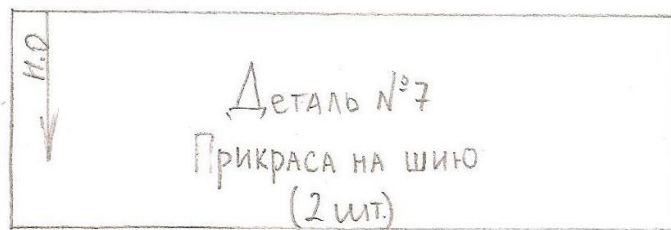 Н.О
Деталь №7
Прикраса на шию
(2 шт.)